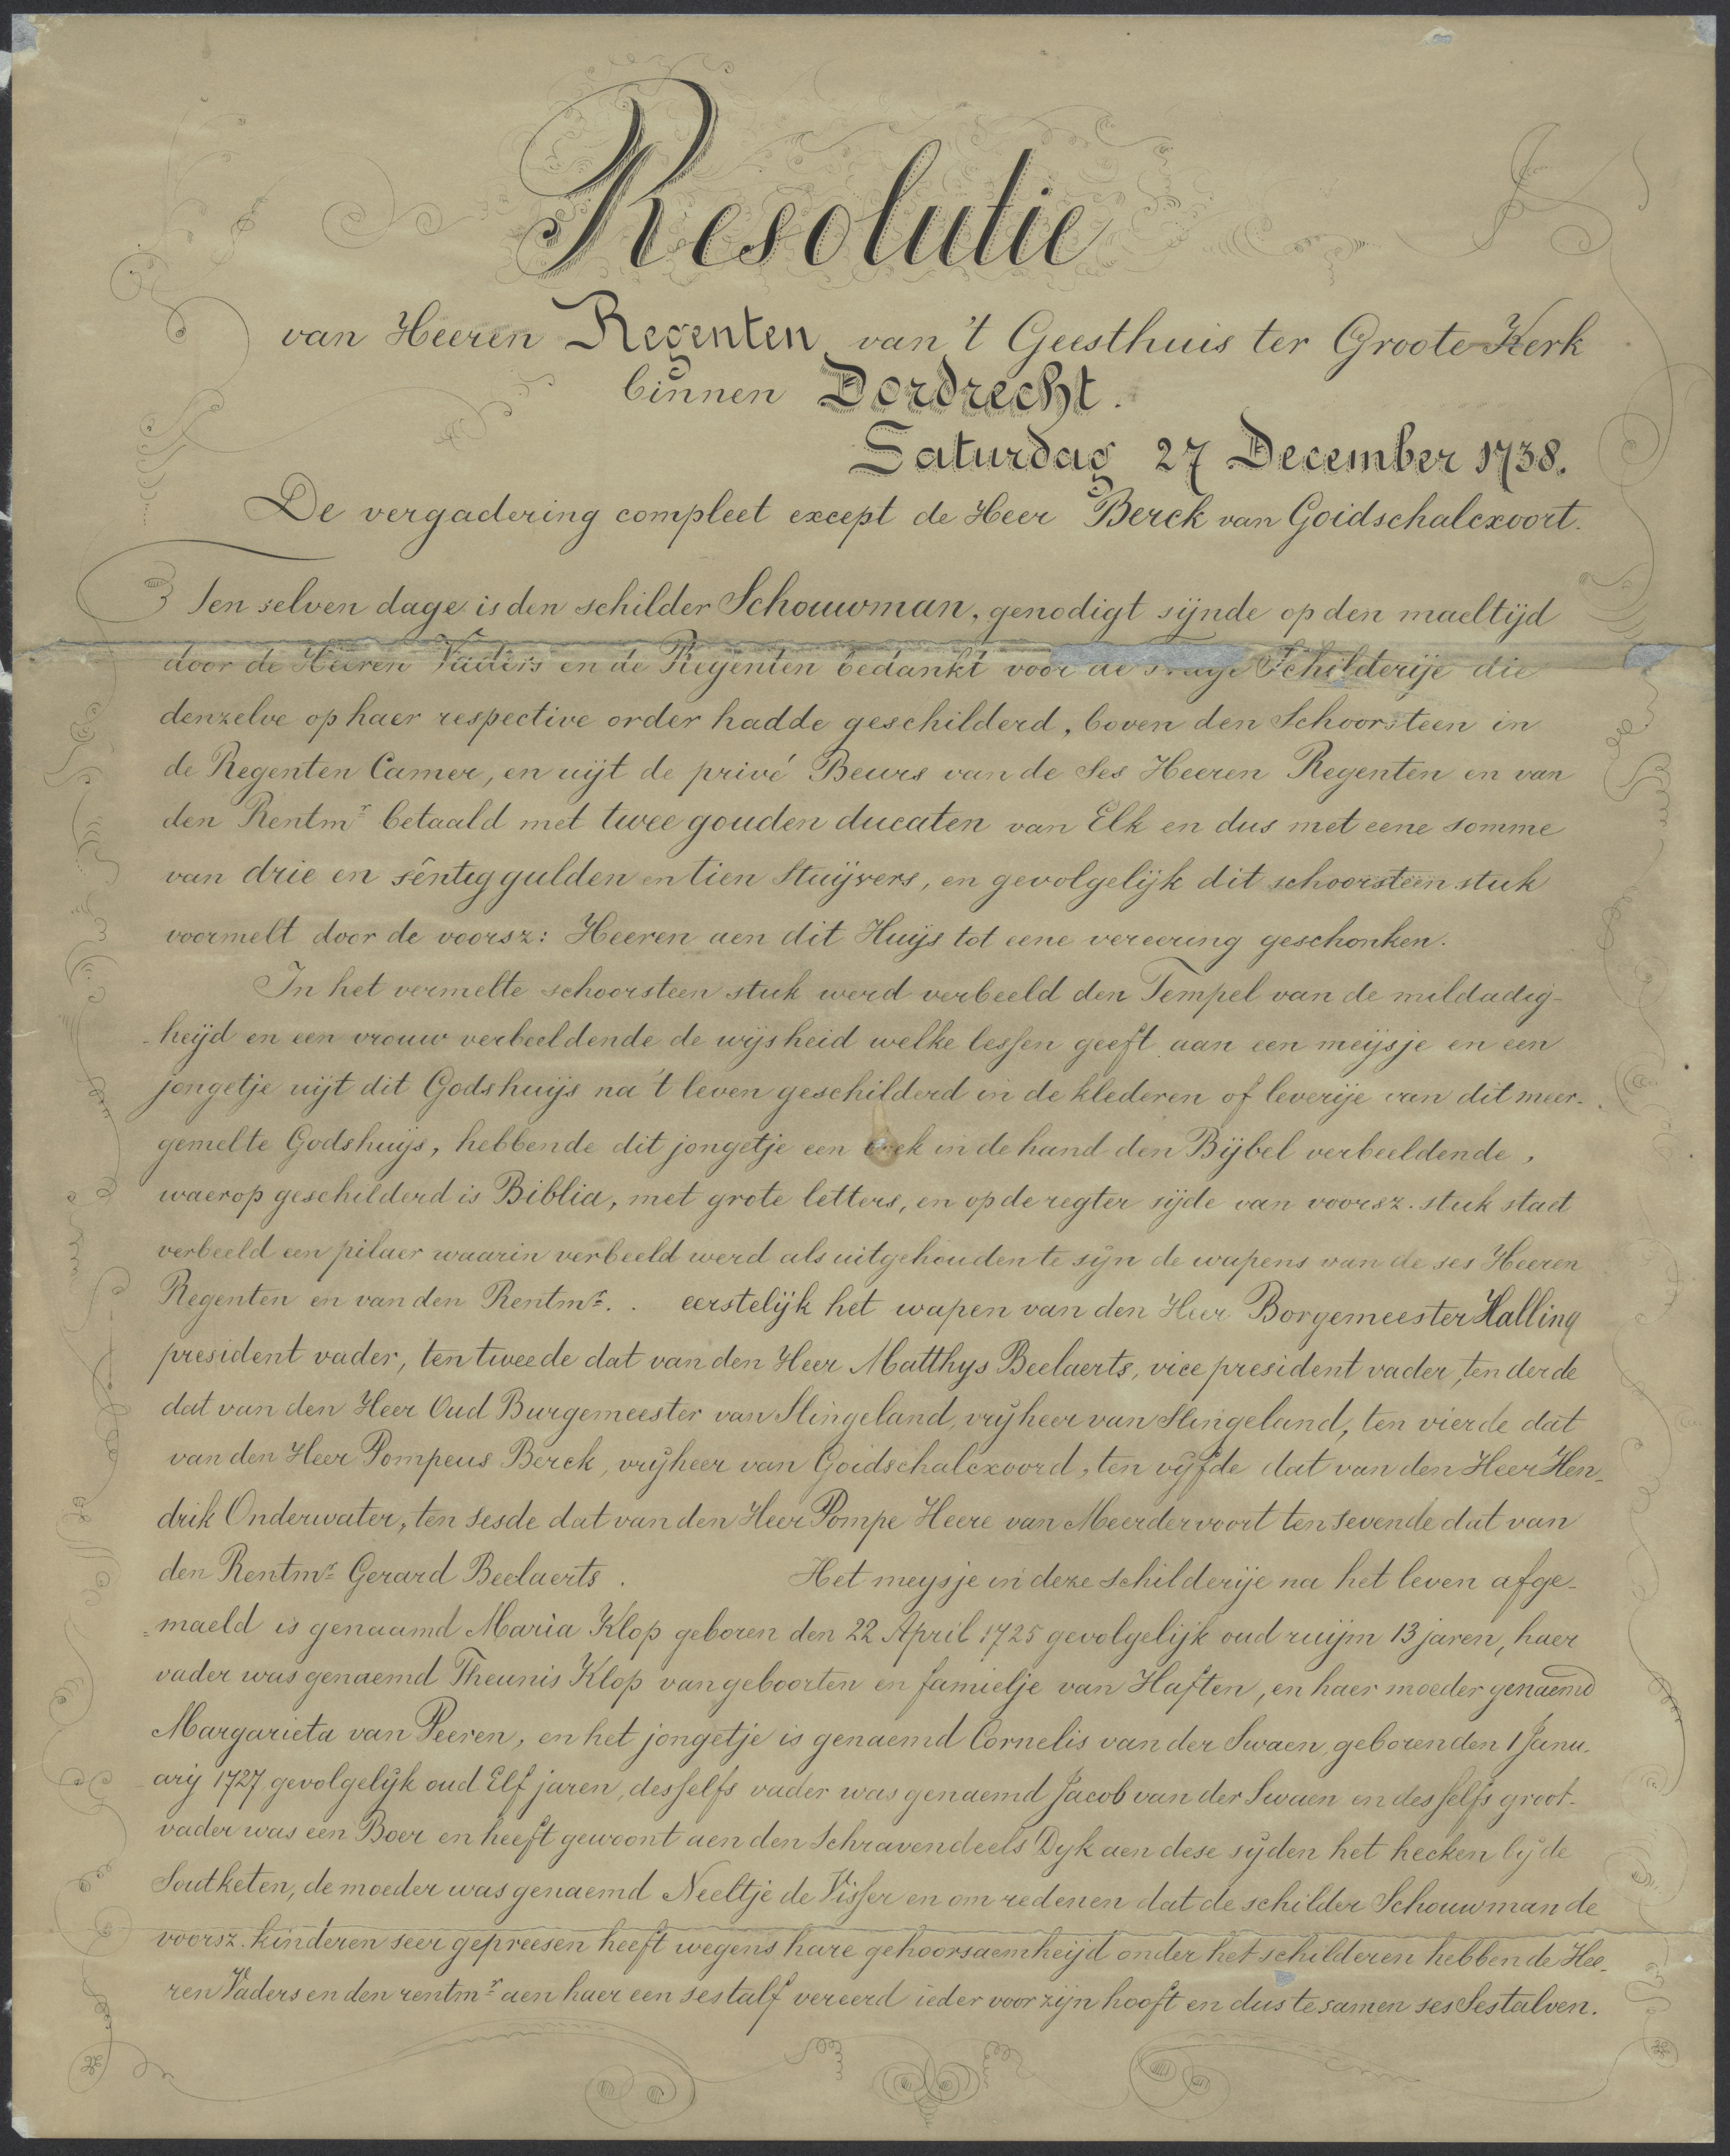 Resolutie
van Heeren Regenten van 't Geesthuis ter Groote Kerk
binnen Dordrecht.
Saturdag 27 December 1738.
De vergadering compleet except de Heer Berck van Goidschalcxoort.
Ten selven dage is den schilder Schouwman, genodigt sijnde op den maeltijd
door de Heeren Vaders en de Regenten bedankt voor de Schilderije die
denzelve op haer respective order hadde geschilderd, boven den Schoorsteen in
de Regenten Camer, en uijt de privé Beurs van de Ses Heeren Regenten en van
den Rentmr betaald met twee gouden ducaten van Elk en dus met eene somme
van drie en sêntig gulden en tien Stuijvers, en gevolgelijk dit schoorsteen stuk
voormelt door de voorsz: Heeren aen dit Huijs tot eene vereering geschonken.
In het vermelte schoorsteen stuk werd verbeeld den Tempel van de mildadig-
-heijd en een vrouw verbeeldende de wijsheid welke lessen geeft aan een meijsje en een
jongetje uijt dit Godshuijs na 't leven geschilderd in de klederen of leverije van dit meer-
gemelte Godshuijs, hebbende dit jongetje een in de hand den Bijbel verbeeldende,
waerop geschilderd is Biblia, met grote letters, en op de regter sijde van voorsz. stuk staet
verbeeld een pilaer waarin verbeeld werd als uitgehouden te sijn de wapens van de ses Heeren
Regenten en van den Rentmr. . eerstelijk het wapen van den Heer Borgemeester Halling
president vader, ten tweede dat van den Heer Matthys Beelaerts, vice president vader, ten derde
dat van den Heer Oud Burgemeester van Slingeland, vrijheer van Slingeland, ten vierde dat
van den Heer Pompeus Berck, vrijheer van Goidschalcxoord, ten vijfde dat van den Heer Hen-
drik Onderwater, ten sesde dat van den Heer Pompe Heere van Meerdervoort ten sevende dat van
den Rentmr Gerard Beelaerts. Het meysje in deze schilderije na het leven afge-
=maeld is genaamd Maria Klop geboren den 22 April 1725 gevolgelijk oud ruijm 13 jaren, haer
vader was genaemd Theunis Klop van geboorten en famielje van Haften, en haer moeder genaemd
Margarieta van Peeren, en het jongetje is genaemd Cornelis van der Swaen, geboren den 1 Janu-
arij 1727 gevolgelijk oud Elf jaren, desselfs vader was genaemd Jacob van der Swaen en desselfs groot-
vader was een Boer en heeft gewoont aen den Schravendeels Dyk aen dese sijden het hecken bij de
Soutketen, de moeder was genaemd Neeltje de Visser en om redenen dat de schilder Schouwman de
voorsz. kinderen seer gepreesen heeft wegens hare gehoorsaemheijd onder het schilderen hebben de Hee-
ren Vaders en den rentmr aen haer een sestalf vereerd ieder voor zijn hooft en dus te samen ses Sestalven.